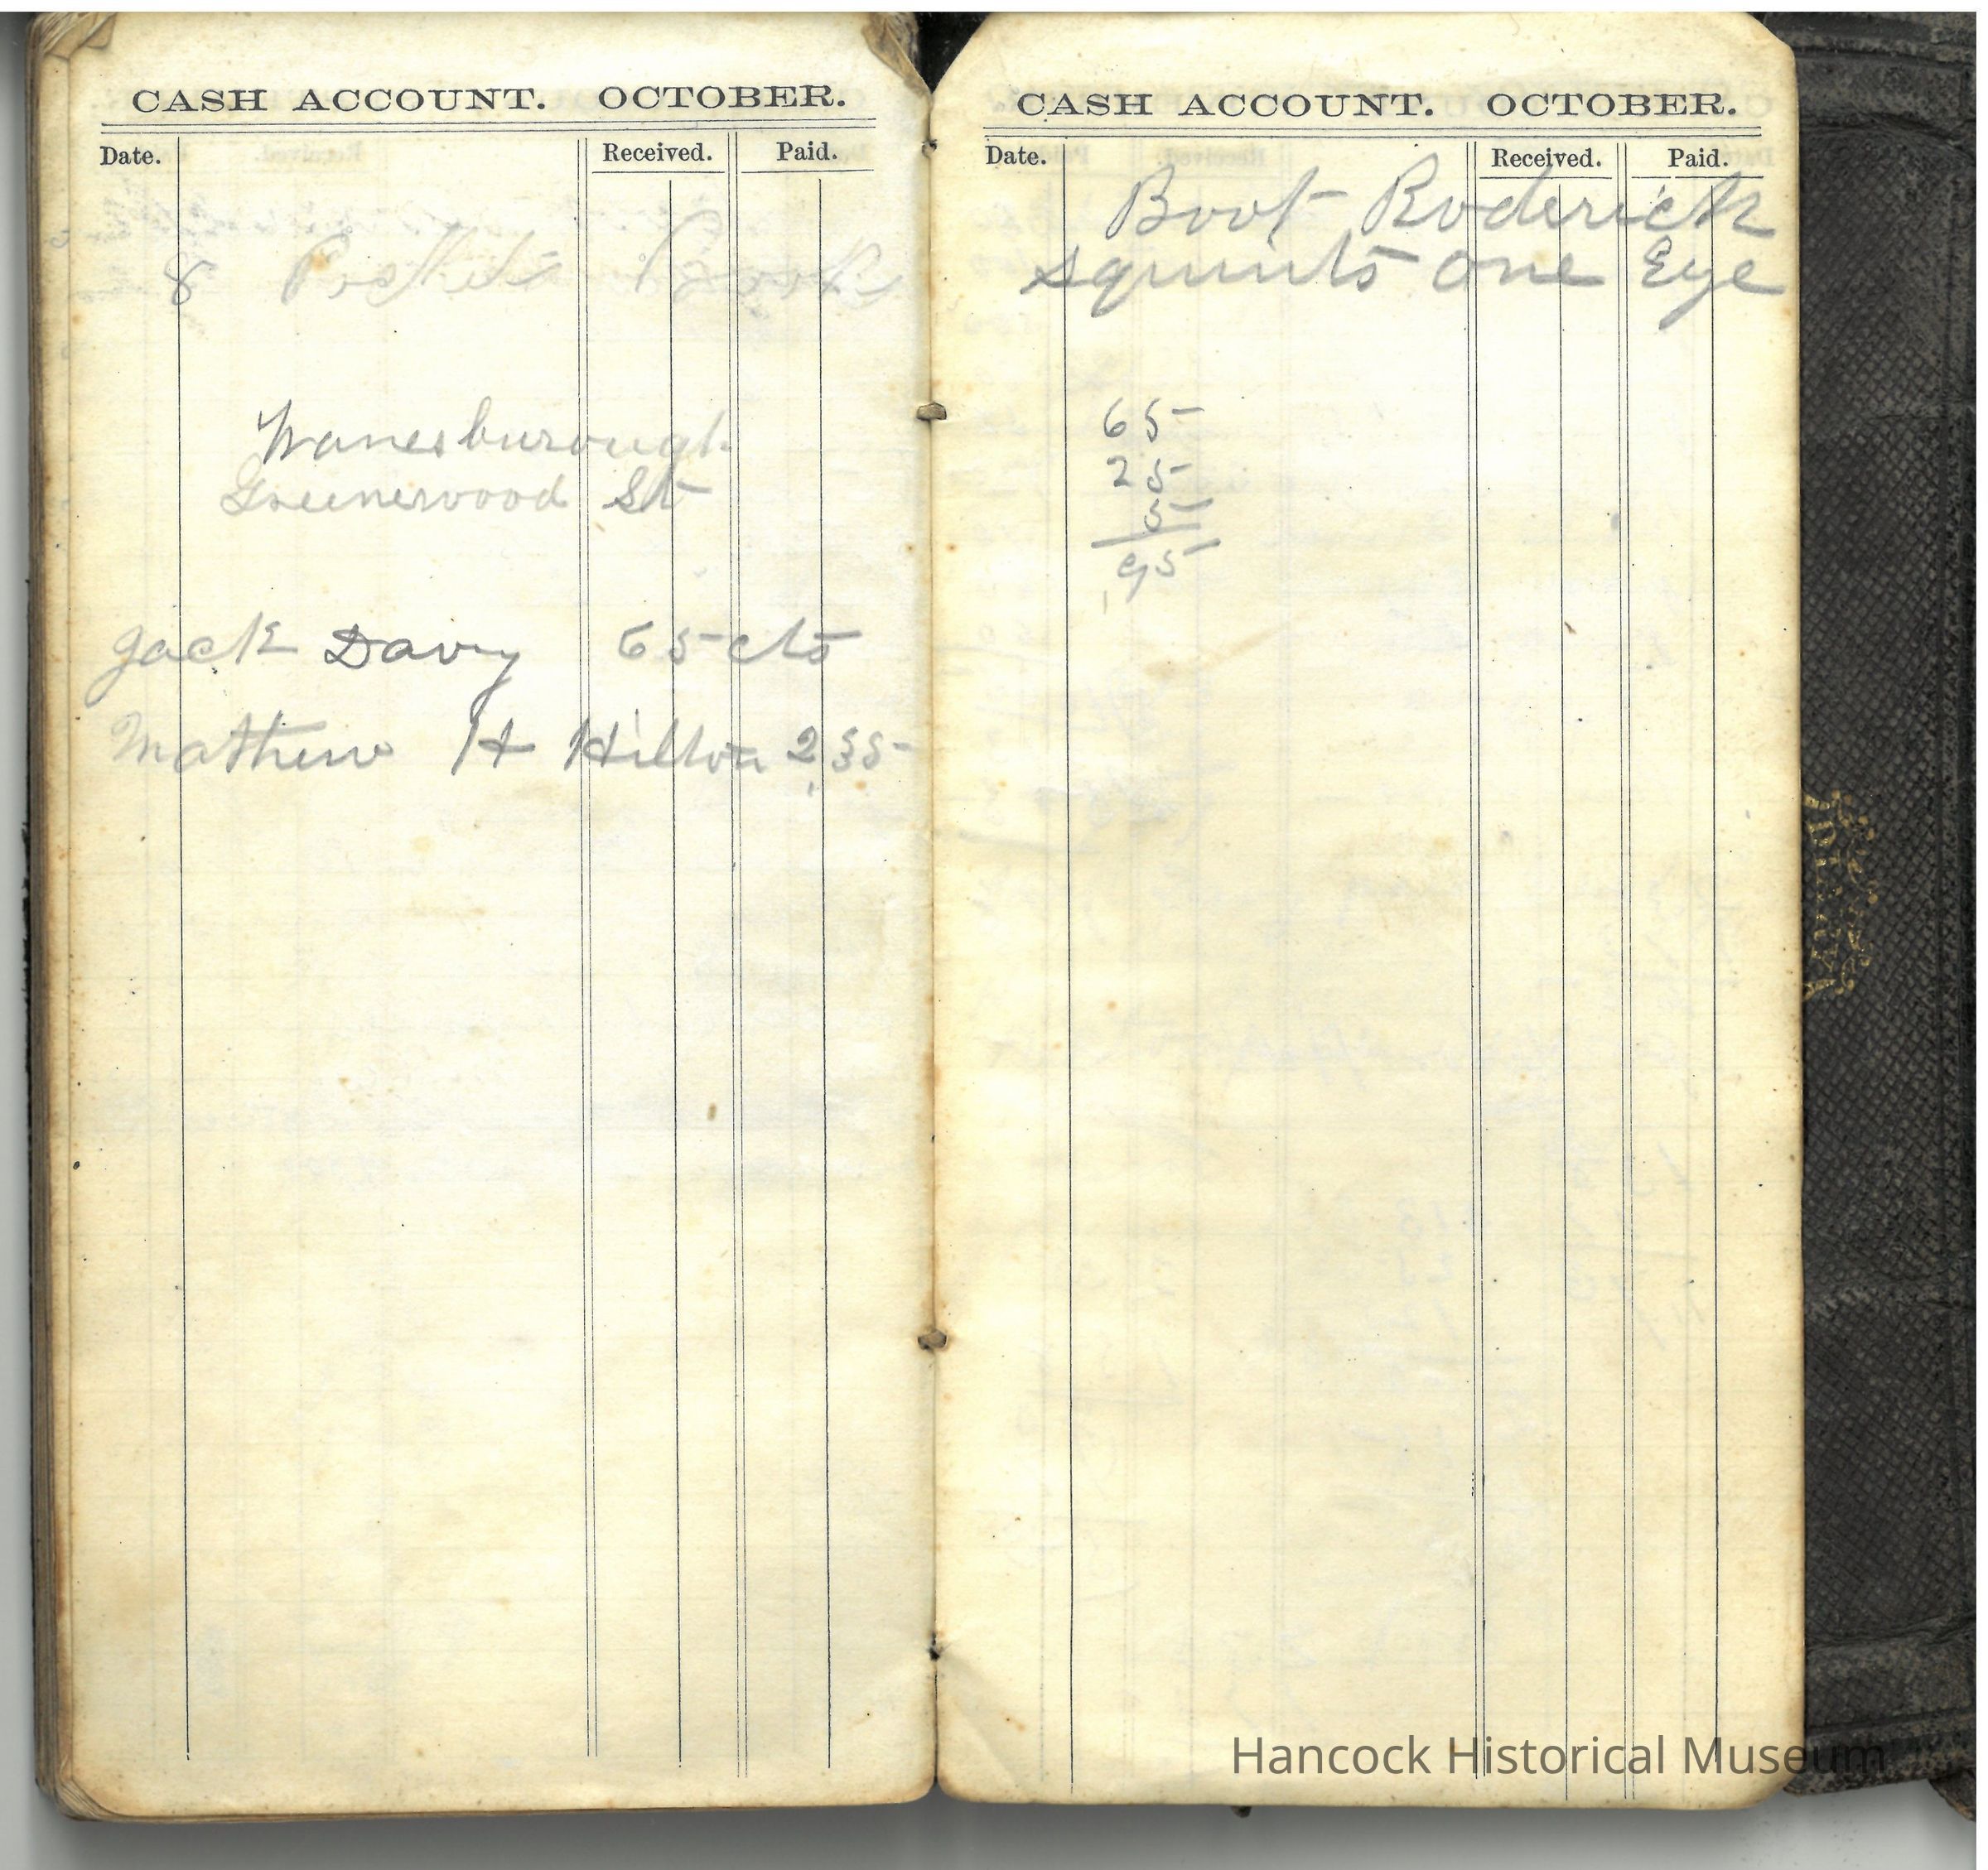 CASH ACCOUNT. OCTOBER.
Date. Received. Paid.
8 Book
Wanesburough
Greenerwood St
Jack Davy 65 cts
Mathew H Hilton 2,35
CASH ACCOUNT. OCTOBER.
Date. Received. Paid.
Boot Roderick
squints one Eye
65
25
5
95
Hancock Historical Museum